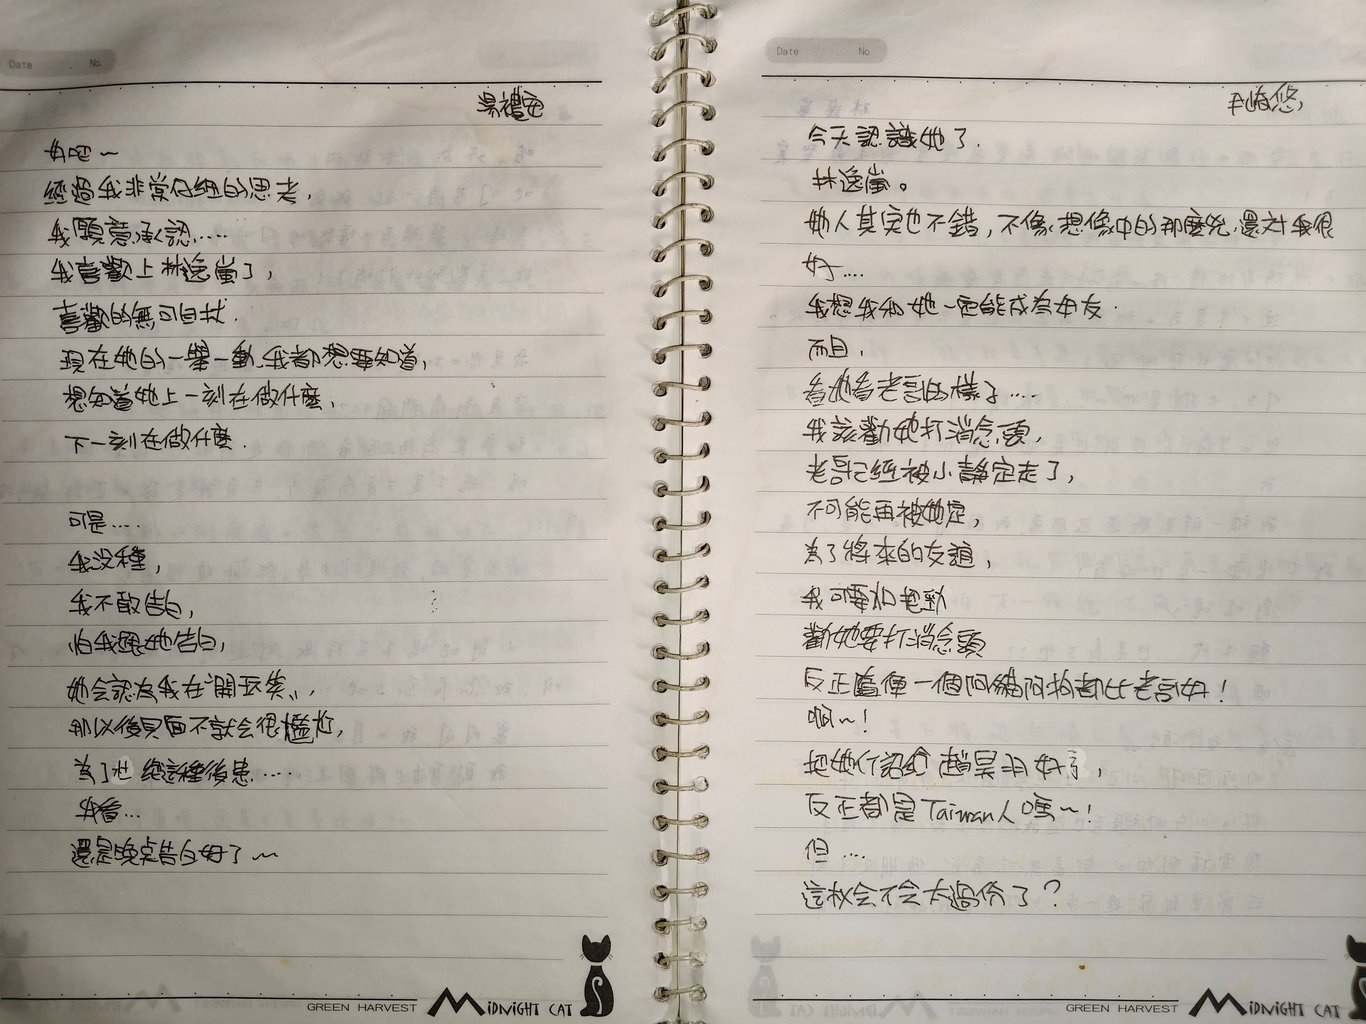 Date . . No.
湯禮安
好吧~
經過我非常仔細的思考,
我願意承認.....
我喜歡上林逸嵐了,
喜歡的無可自拔.
現在她的一舉一動,我都想要知道,
想知道她上一刻在做什麼,
下一刻在做什麼.
可是....
我沒種,
我不敢告白,
怕我跟她告白,
她会認為我在"開玩笑",
那以後見面不就会很尷尬,
為了杜絕這種後患....
我看...
還是晚点告白好了~
GREEN HARVEST MIDNIGHT CAT
Date . . No.
崎悠,
今天認識她了.
林逸嵐。
她人其实也不錯,不像想像中的那麼兇,還对我很
好....
我想我和她一定能成為好友.
而且,
看她看老哥的樣子....
我該勸她打消念頭,
老哥已經被小靜定走了,
不可能再被她定,
為了將來的友誼,
我可要加把勁
勸她要打消念頭
反正隨便一個阿貓阿狗都比老哥好!
啊~!
把她介紹給趙昊羽好了,
反正都是Taiwan人嘛~!
但....
這样会不会太過份了?
GREEN HARVEST MIDNIGHT CAT